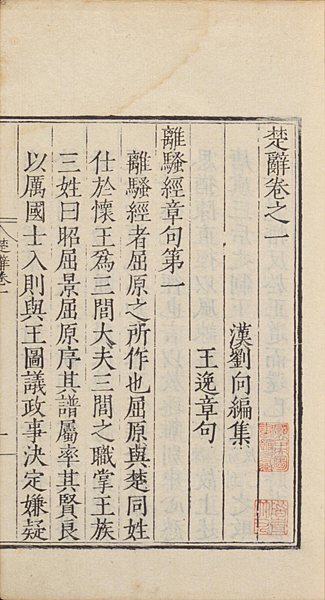 楚辭卷之一
漢劉向編集
王逸章句
離騷經章句第一
離騷經者屈原之所作也屈原與楚同姓
仕於懷王為三閭大夫三閭之職掌王族
三姓曰昭屈景屈原序其譜屬率其賢良
以厲國士入則與王圖議政事決定嫌疑
楚辭卷一